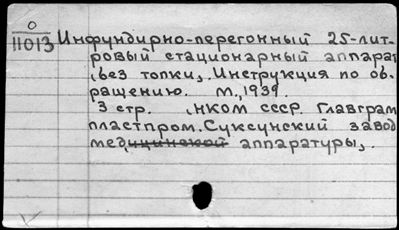 О
11013 Инфундирно-перегонный 25-лит-
ровый стационарный аппарат
без топки, Инструкция по об-
ращению. М., 1939.
3 стр. НКОМ СССР. Главграм
пластпром. Суксунский завод
медицинской аппаратуры,.